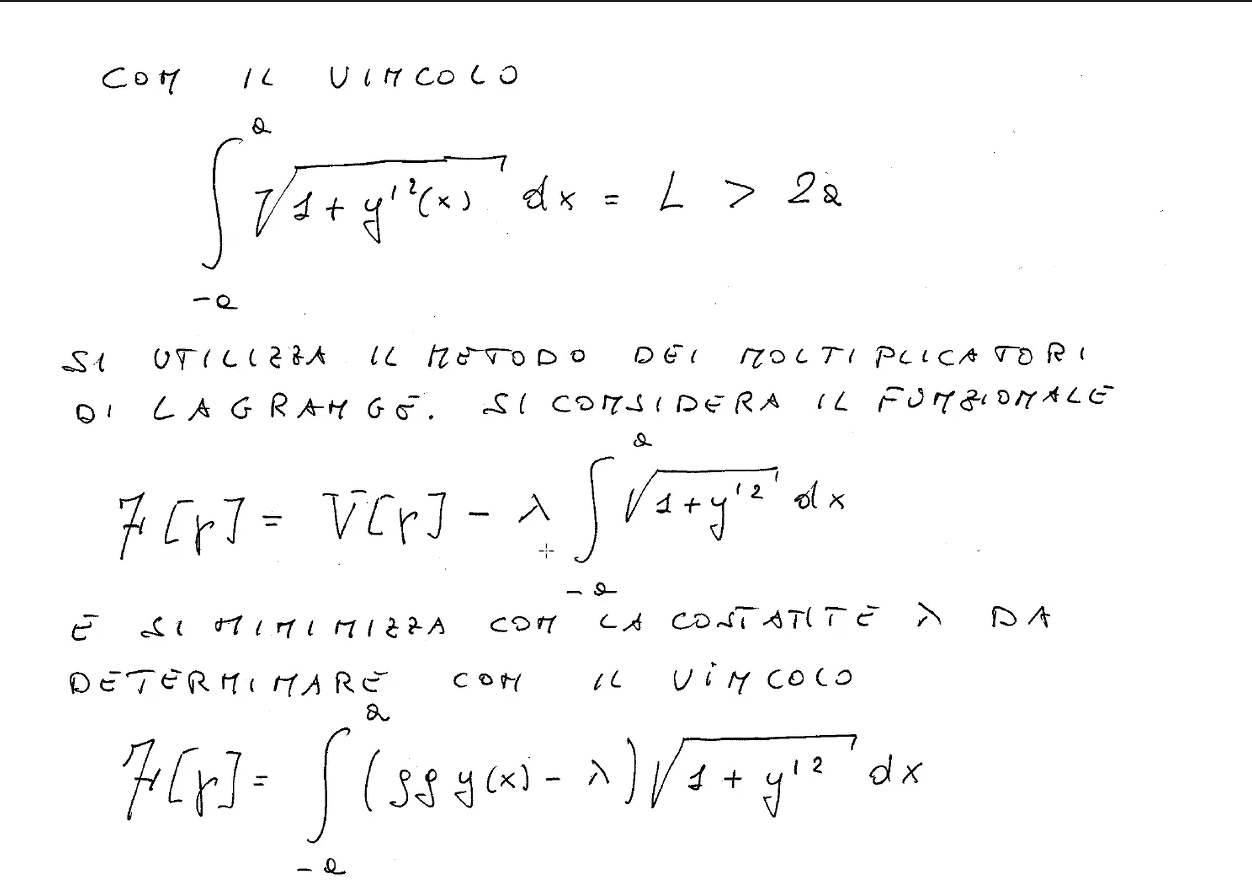 CON IL VINCOLO
∫_{-a}^{a} √(1 + y'²(x)) dx = L > 2a
SI UTILIZZA IL METODO DEI MOLTIPLICATORI
DI LAGRANGE. SI CONSIDERA IL FUNZIONALE
F[γ] = V[γ] - λ ∫_{-a}^{a} √(1 + y'²) dx
E SI MINIMIZZA CON LA COSTANTE λ DA
DETERMINARE CON IL VINCOLO
F[γ] = ∫_{-a}^{a} (ρg y(x) - λ) √(1 + y'²) dx